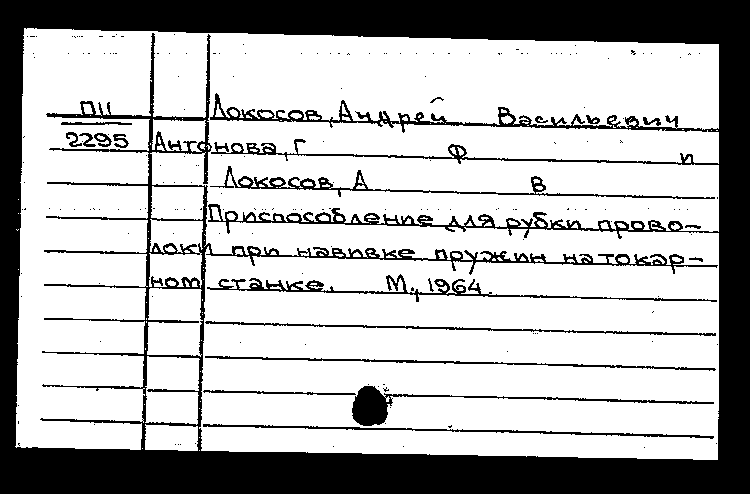 П11 Локосов, Андрей Васильевич
2295 Антонова, Г Ф и
Локосов, А В
Приспособление для рубки прово-
локи при навивке пружин на токар-
ном станке. М., 1964.